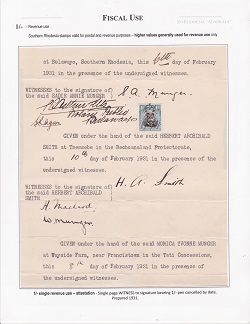 FISCAL USE
1/- Revenue use
Southern Rhodesia stamps valid for postal and revenue purposes - higher values generally used for revenue use only
at Bulawayo, Southern Rhodesia, this 6th day of
February 1931 in the presence of the undersigned witnesses.
WITNESSES to the signature of
the said SADIE ANNIE MUNGER
S A Munger.
Notary Public
Bulawayo
GIVEN under the hand of the said HERBERT ARCHIBALD
SMITH at Tsessebe in the Bechuanaland Protectorate,
this 10th day of February 1931 in the presence
of the undersigned witnesses.
WITNESSES to the signature of
the said HERBERT ARCHIBALD
SMITH
H. A. Smith
W. Munger
GIVEN under the hand of the said MONICA YVONNE MUNGER
at Wayside Farm, near Francistown in the Tati Concessions,
this 8th day of February 1931 in the presence of
the undersigned witnesses.
1/- single revenue use - attestation - Single page WITNESS to signature bearing 1/- pen cancelled by date.
Prepared 1931.